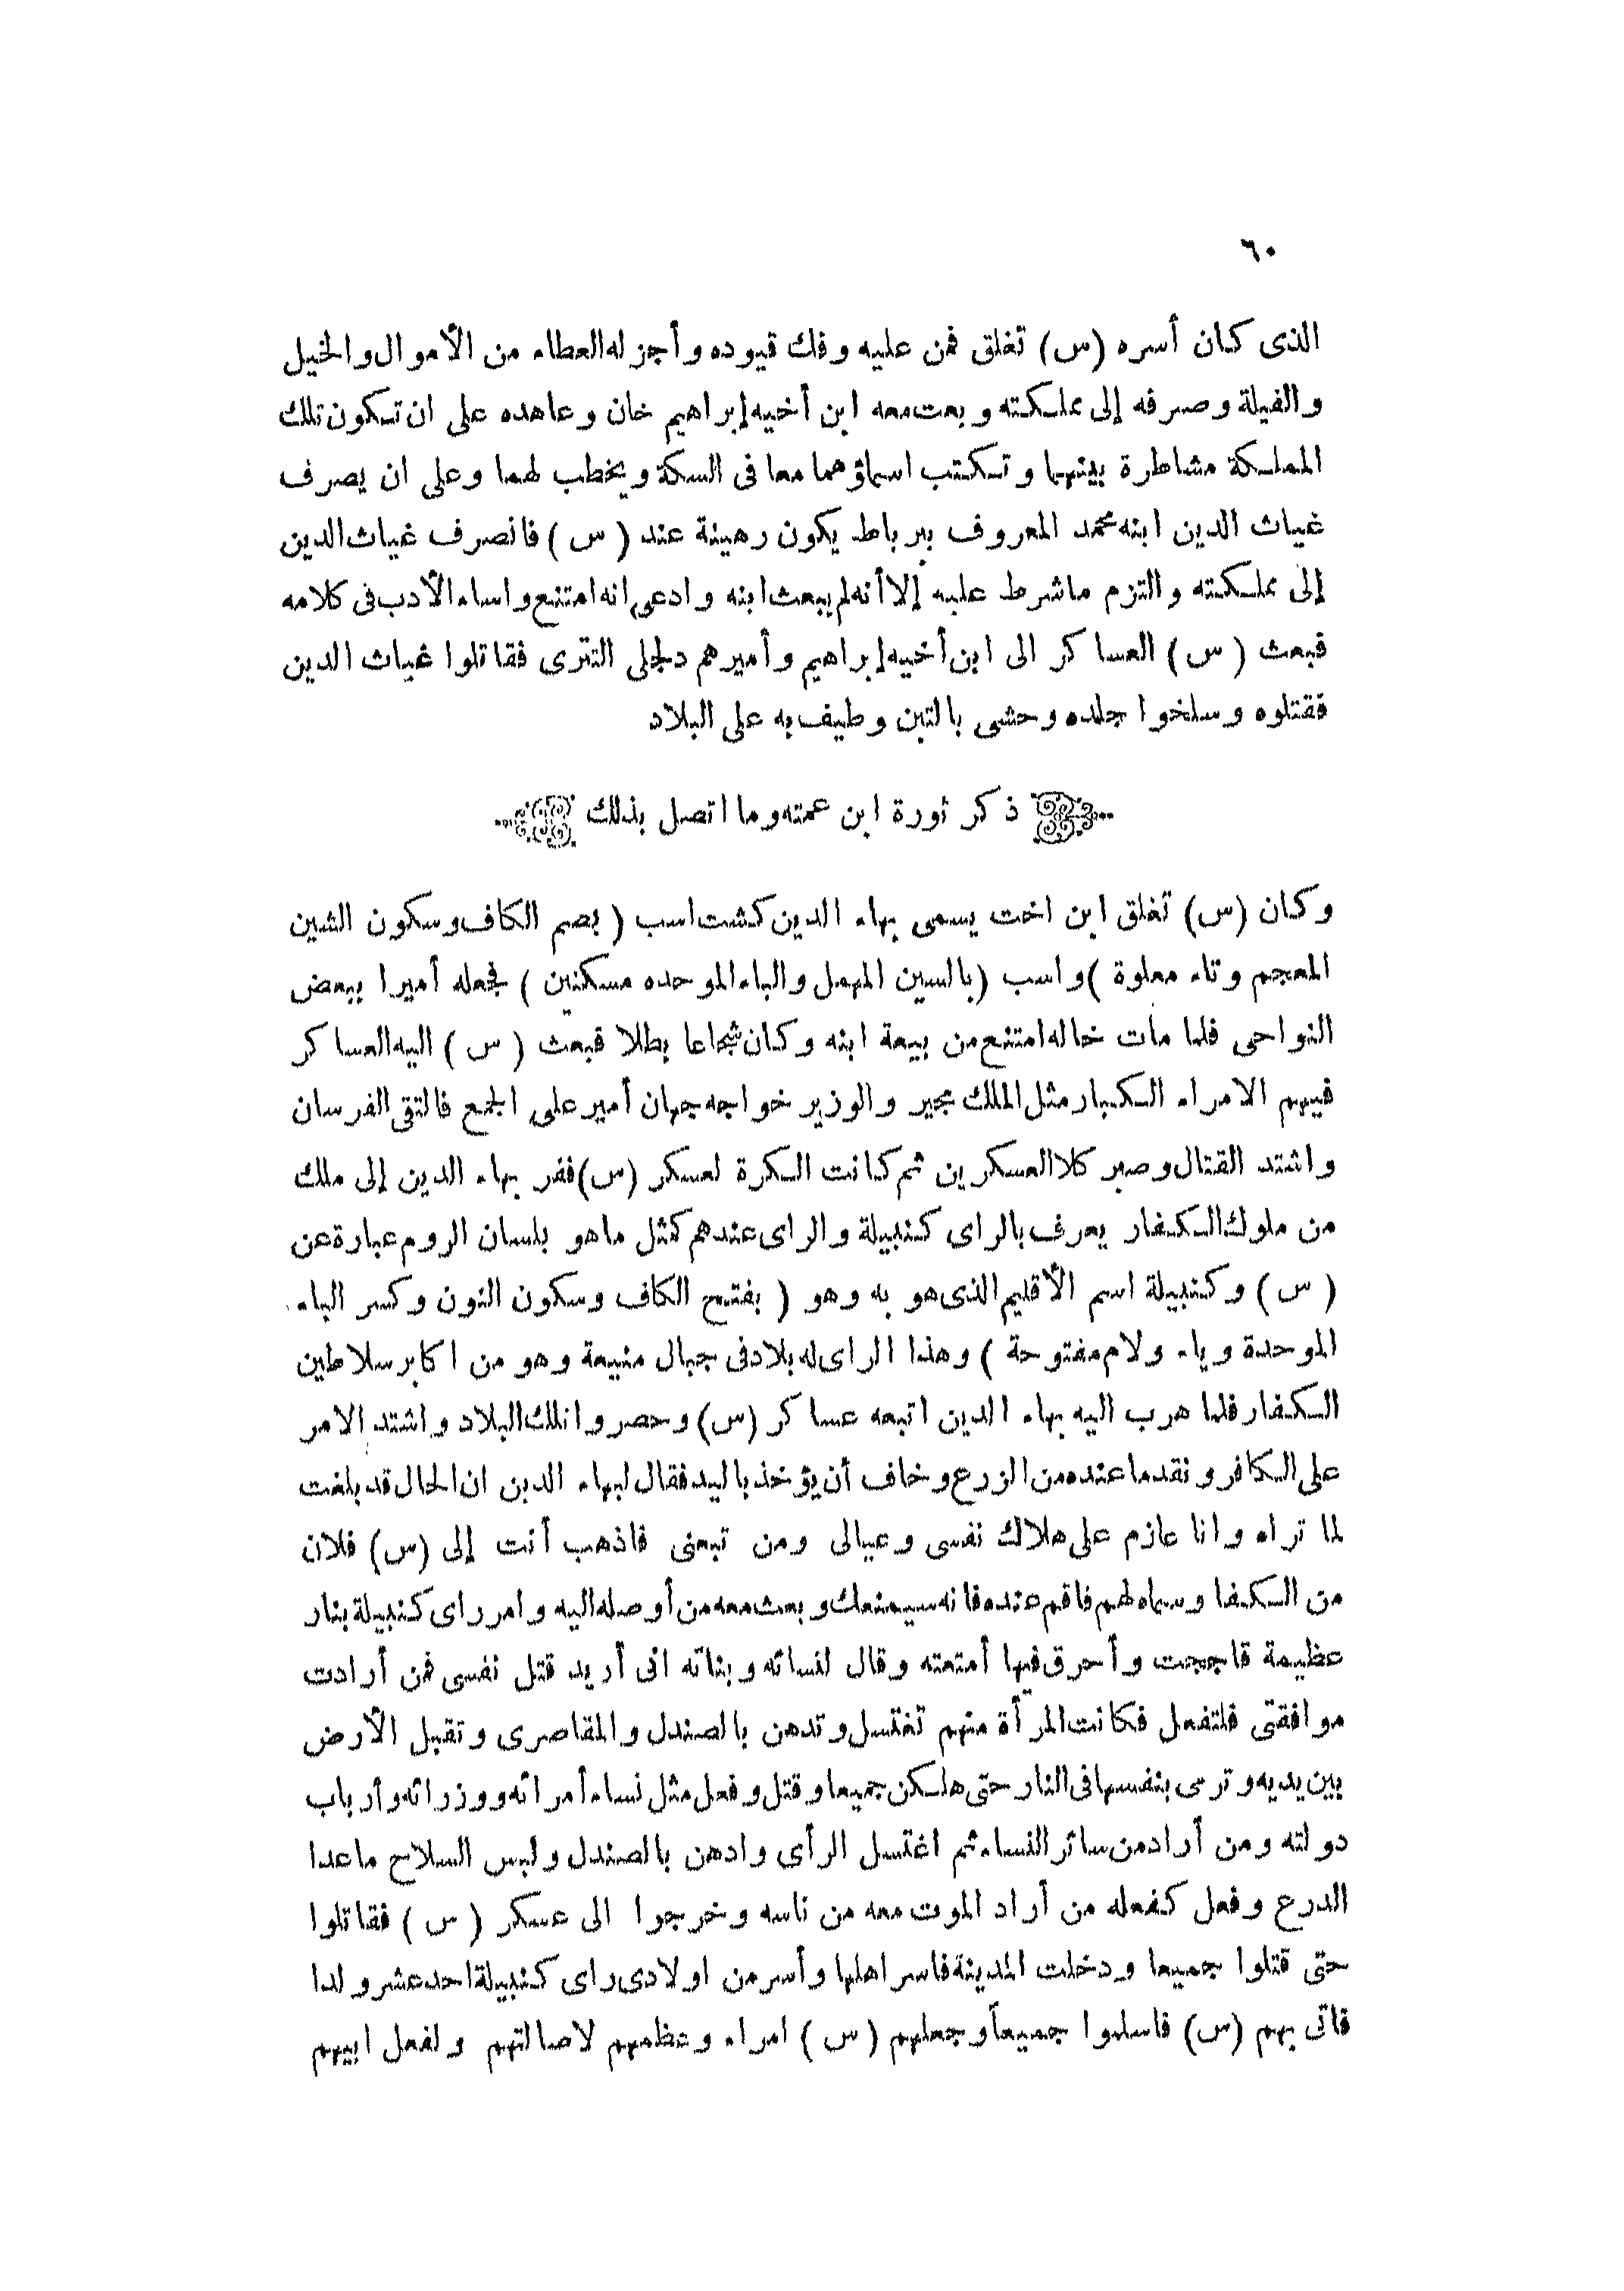 ٦٠
الذى كان أسره (س) تغلق فمن عليه وفك قيوده وأجزله العطاء من الأموال والخيل
والفيلة وصرفه إلى مملكته وبعث معه ابن أخيه إبراهيم خان وعاهده على ان تكون تلك
المملكة مشاطرة بينهما وتكتب اسماؤهما معا فى السكة ويخطب لهما وعلى ان يصرف
غياث الدين ابنه محمد المعروف ببرباط يكون رهينة عند (س) فانصرف غياث الدين
إلى مملكته والتزم ماشرط عليه إلا أنه لم يبعث ابنه وادعى انه امتنع واساء الأدب فى كلامه
فبعث (س) العساكر الى ابن أخيه إبراهيم وأميرهم دلجلى التترى فقاتلوا غياث الدين
فقتلوه وسلخوا جلده وحشى بالتبن وطيف به على البلاد
ذكر ثورة ابن عمته وما اتصل بذلك
وكان (س) تغلق ابن اخت يسمى بهاء الدين كشت اسب (بصم الكاف وسكون الشين
المعجم وتاء معلوة) واسب (بالسين المهمل والباء الموحده مسكنين) فجعله أميرا ببعض
النواحى فلما مات خاله امتنع من بيعة ابنه وكان شجاعا بطلا فبعث (س) اليه العساكر
فيهم الامراء الكبار مثل الملك مجير والوزير خواجه جهان أمير على الجمع فالتقى الفرسان
واشتد القتال وصبر كلا العسكرين ثم كانت الكرة لعسكر (س) ففر بهاء الدين إلى ملك
من ملوك الكفار يعرف بالراى كنبيلة والراى عندهم كمثل ماهو بلسان الروم عبارة عن
(س) وكنبيلة اسم الأقليم الذى هو به وهو (بفتح الكاف وسكون النون وكسر الباء
الموحدة وياء ولام مفتوحة) وهذا الراى له بلاد فى جبال منيعة وهو من اكابر سلاطين
الكفار فلما هرب اليه بهاء الدين اتبعه عساكر (س) وحصروا تلك البلاد واشتد الامر
على الكافر ونفد ما عنده من الزرع وخاف أن يؤخذ باليد فقال لبهاء الدين ان الحال قد بلغت
لما تراه وانا عازم على هلاك نفسى وعيالى ومن تبعنى فاذهب أنت إلى (س) فلان
من الكفا وسماه لهم فاقم عنده فانه سيمنعك وبعث معه من أوصله اليه وامر راى كنبيلة بنار
عظيمة فاججت وأحرق فيها أمتعته وقال لنسائه وبناته انى أريد قتل نفسى فمن أرادت
موافقتى فلتفعل فكانت المرأة منهم تغتسل وتدهن بالصندل والمقاصرى وتقبل الأرض
بين يديه وترمى بنفسها فى النار حتى هلكن جميعا وقتل وفعل مثل نساء أمرائه ووزرائه وأرباب
دولته ومن أراد من سائر النساء ثم اغتسل الرأى وادهن بالصندل ولبس السلاح ماعدا
الدرع وفعل كفعله من أراد الموت معه من ناسه وخرجوا الى عسكر (س) فقاتلوا
حتى قتلوا جميعا ودخلت المدينة فاسر اهلها وأسر من اولادى راى كنبيلة احد عشر ولدا
فاتى بهم (س) فاسلموا جميعاً وجعلهم (س) امراء وعظمهم لاصالتهم ولفعل ابيهم